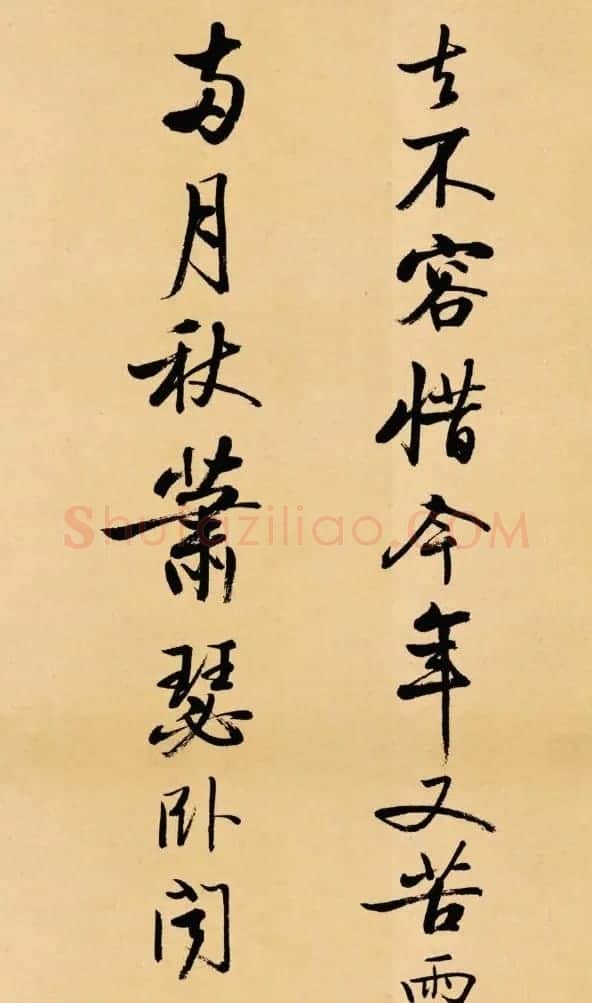 去不容惜今年又苦雨
兩月秋蕭瑟卧聞
Shufaziliao.COM